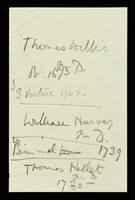 Thomas Willis
ob. 1675 D.
G Vertue 1742.
William Harvey
M D.
1739
Thomas Pellet
M D
1730